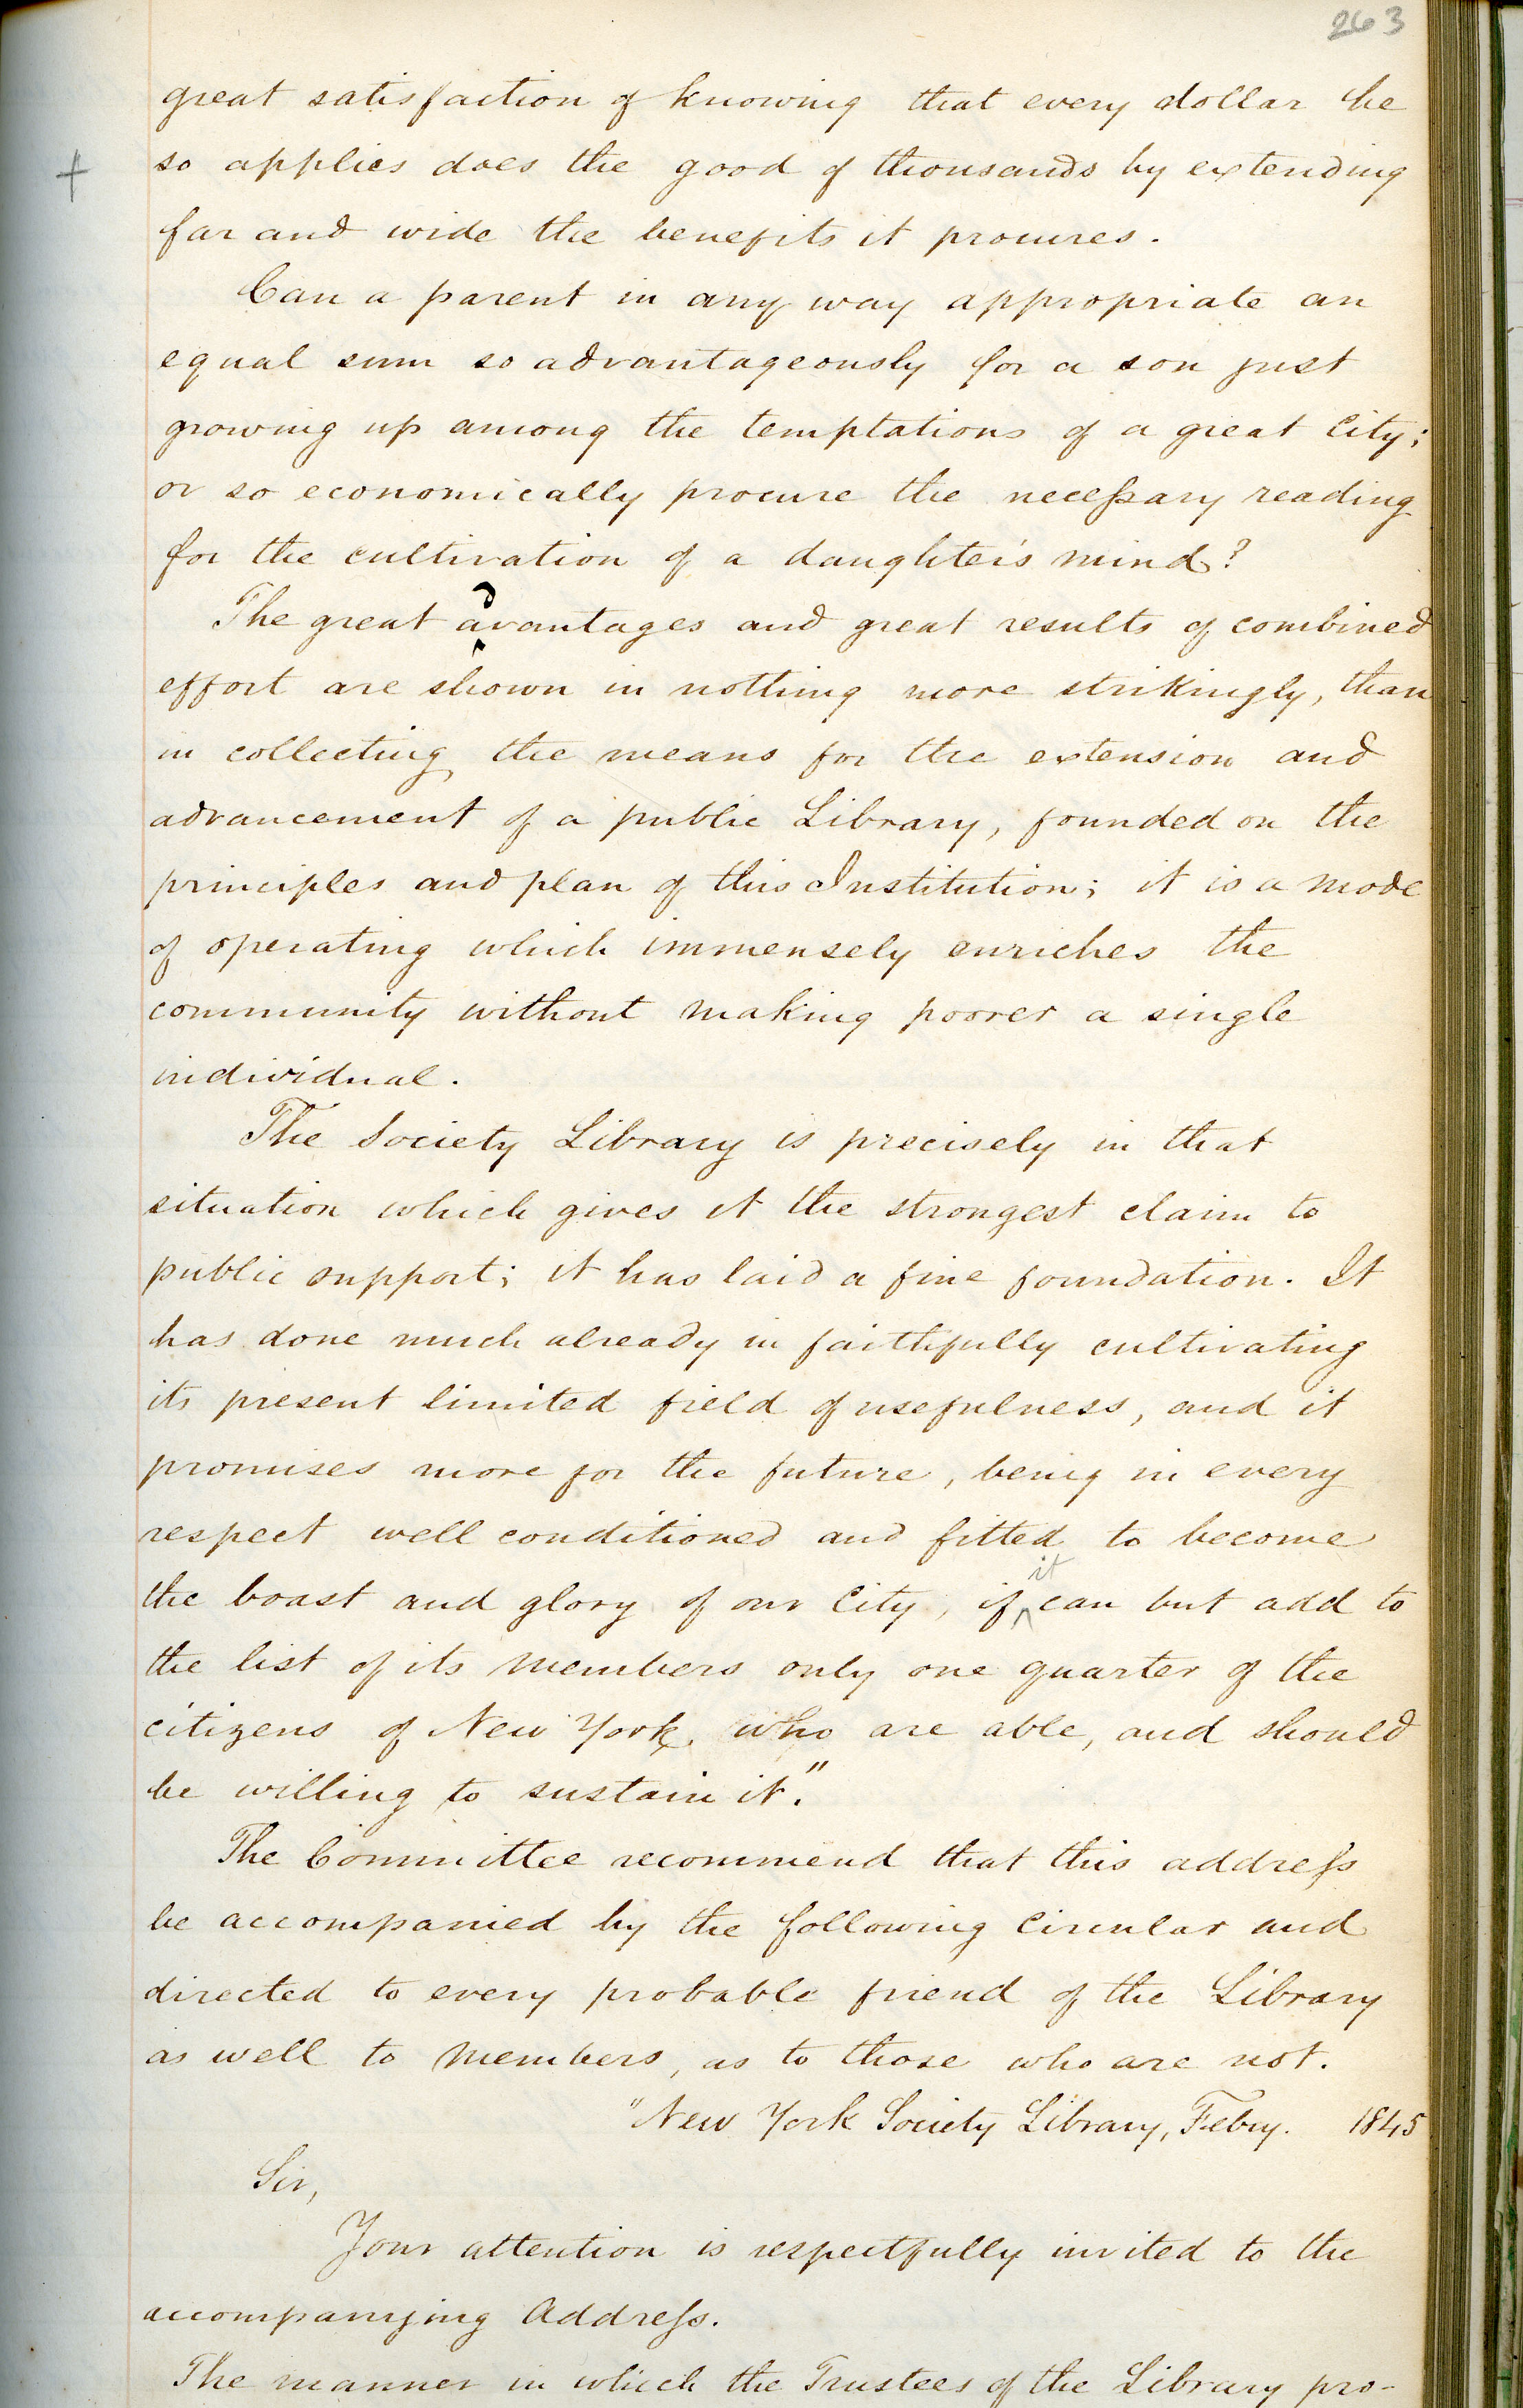 263
great satisfaction of knowing that every dollar he
so applies does the good of thousands by extending
far and wide the benefits it procures.
Can a parent in any way appropriate an
equal sum so advantageously for a son just
growing up among the temptations of a great City;
or so economically procure the neceſsary reading
for the cultivation of a daughter's mind?
The great advantages and great results of combined
effort are shown in nothing more strikingly, than
in collecting the means for the extension and
advancement of a public Library, founded on the
principles and plan of this Institution; it is a mode
of operating which immensely enriches the
community without making poorer a single
individual.
The Society Library is precisely in that
situation which gives it the strongest claim to
public support; it has laid a fine foundation. It
has done much already in faithfully cultivating
its present limited field of usefulness, and it
promises more for the future, being in every
respect well conditioned and fitted to become
the boast and glory of our City, if it can but add to
the list of its members only one quarter of the
citizens of New York, who are able, and should
be willing to sustain it."
The Committee recommend that this addreſs
be accompanied by the following Circular and
directed to every probable friend of the Library
as well to members, as to those who are not.
"New York Society Library, Febry. 1845
Sir,
Your attention is respectfully invited to the
accompanying Addreſs.
The manner in which the Trustees of the Library pro-